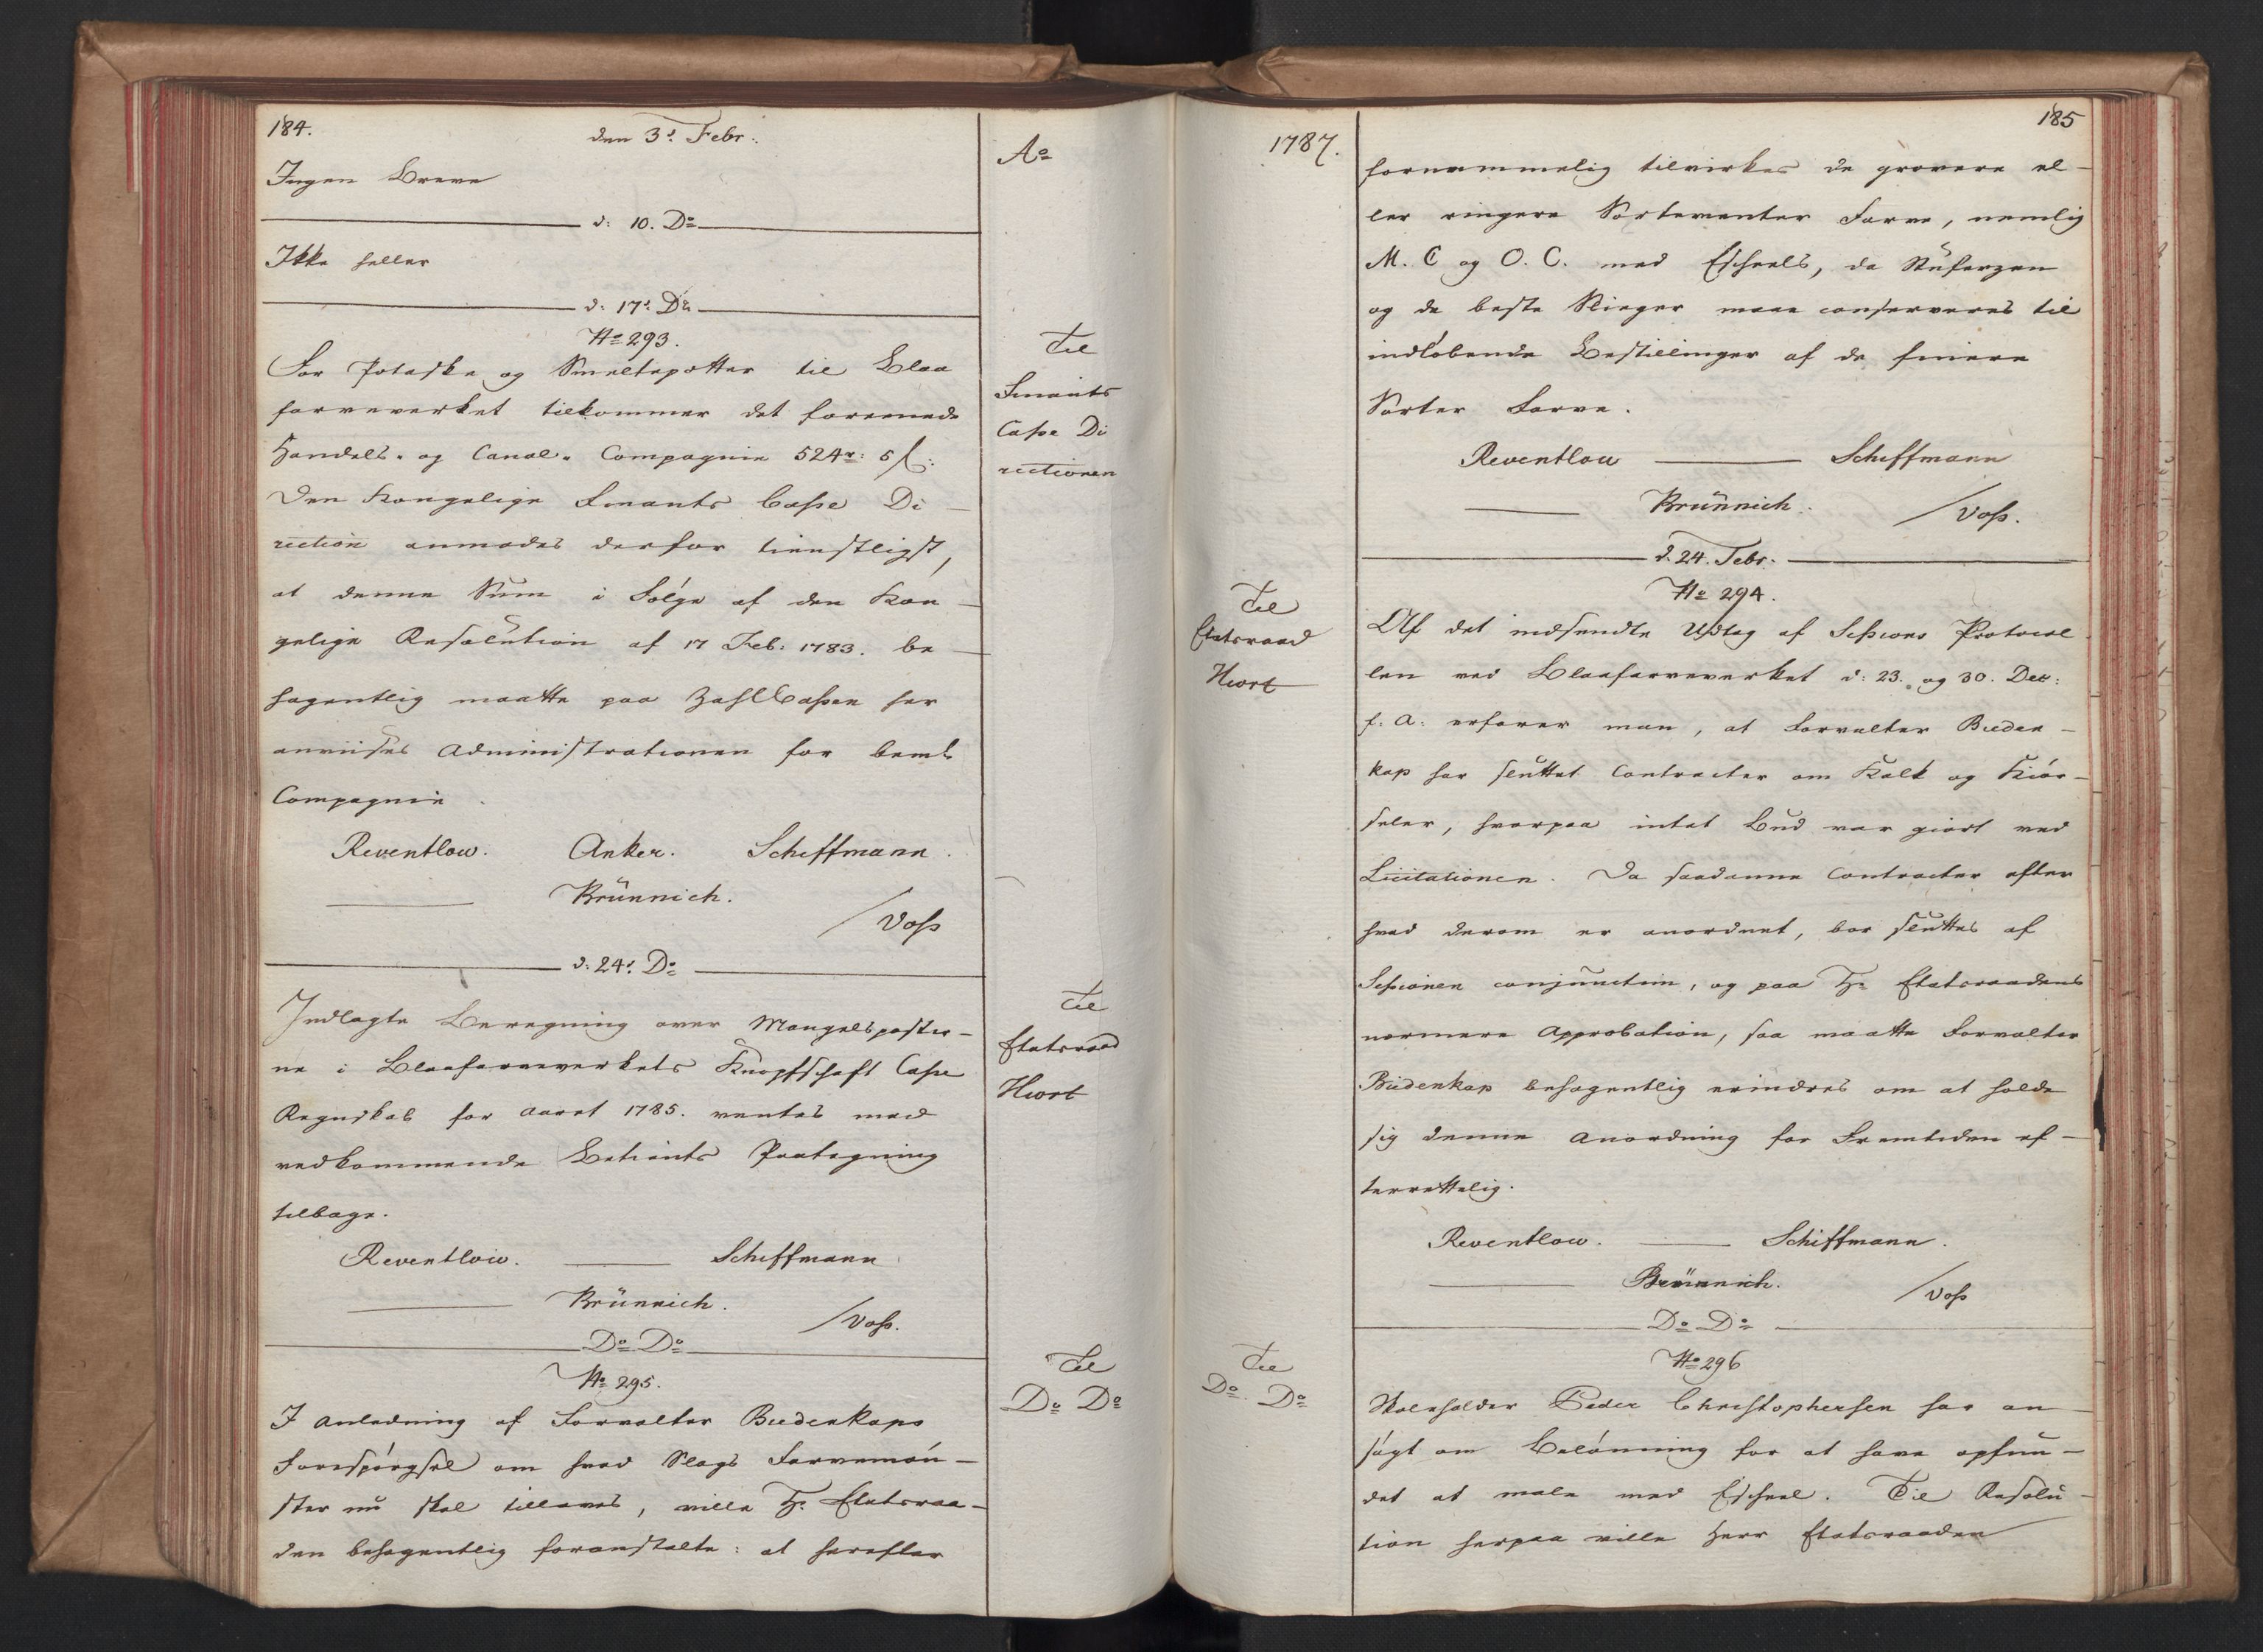 184.
den 3d Febr:
Ao
Ingen Breve
d: 10. Do
Ikke heller
d: 17d Do
No 293.
Til
Finants
Casse Di
rectionen
For Potaske og Smeltepotter til Blaa
farveverket tilkommer det foreenede
Handels- og Canal- Compagnie 524r: 5 s:
Den Kongelige Finants Casse Di-
rection anmodes derfor tienstligst,
at denne Sum i Følge af den Kon-
gelige Resolution af 17 Feb: 1783. be-
hagentlig maatte paa Zahl Cassen her
anviises Administrationen for bemte
Compagnie.
Reventlow. Anker. Schiffmann.
Brünnich.
/Voss
d: 24d Do
Til
Etatsraad
Hiort
Indlagte Beregning over Mangelsposter-
ne i Blaafarveverkets Knapschaft Casse
Regnskab for Aaret 1785. ventes med
vedkommende Betients Paategning
tilbage.
Reventlow. Schiffmann
Brünnich.
/Voss.
Do Do
No 295.
Til
Do Do
I Anledning af Forvalter Buedenkaps
Forespørgsel om hvad Slags Farvemøn-
ster nu skal tillaves, ville Hr. Etatsraa-
den behagentlig foranstalte: at herefter
185
1787.
fornemmelig tilvirkes de grovere el-
ler ringere Sorteventer Farve, nemlig
M. C og O. C. med Eschels, da Stuferzen
og de beste Slieger maae conserveres til
indløbende Bestillinger af de finere
Sorter Farve.
Reventlow Schiffmann
Brünnich.
/Voss.
d. 24. Febr.
No 294.
Til
Etatsraad
Hiort
Af det indsendte Udtog af Sessions Protocol
len ved Blaafarveverket d: 23. og 30. Dec:
f: A: erfarer man, at Forvalter Bueden-
kap har sluttet Contracter om Kalk og Kiør-
seler, hvorpaa intet Bud var giort ved
Licitationen. Da saadanne Contracter efter
hvad derom er anordnet, bør sluttes af
Sessionen conjunctim, og paa Hr. Etatsraadens
nærmere Approbation, saa maatte Forvalter
Büdenkap behagentlig erindres om at holde
sig denne Anordning for Fremtiden ef-
terrettelig.
Reventlow. Schiffmann.
Brünnich.
/Voss
Do Do
No 296
Til
Do. Do
Skoleholder Peder Christophersen har an
søgt om Belønning for at have opfun-
det at male med Eschel. Til Resolu-
tion herpaa ville Herr Etatsraaden